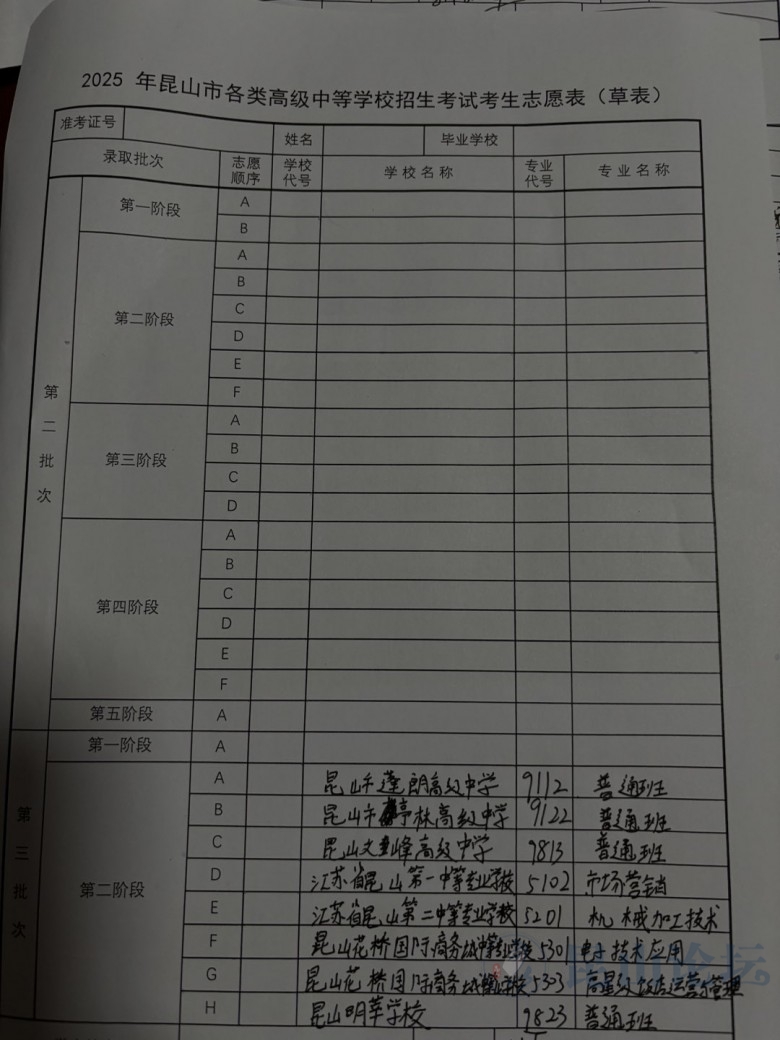 2025 年昆山市各类高级中等学校招生考试考生志愿表（草表）
准考证号 姓名 毕业学校
录取批次 志愿顺序 学校代号 学校名称 专业代号 专业名称
第二批次
第一阶段 A
B
第二阶段 A
B
C
D
E
F
第三阶段 A
B
C
D
第四阶段 A
B
C
D
E
F
第五阶段 A
第三批次
第一阶段 A
第二阶段 A 昆山市蓬朗高级中学 9112 普通班
B 昆山市亭林高级中学 9122 普通班
C 昆山文峰高级中学 9813 普通班
D 江苏省昆山第一中等专业学校 5102 市场营销
E 江苏省昆山第二中等专业学校 5201 机械加工技术
F 昆山花桥国际商务城中等专业学校 5301 电子技术应用
G 昆山花桥国际商务城中等专业学校 5303 高星级饭店运营与管理
H 昆山明莘学校 9823 普通班